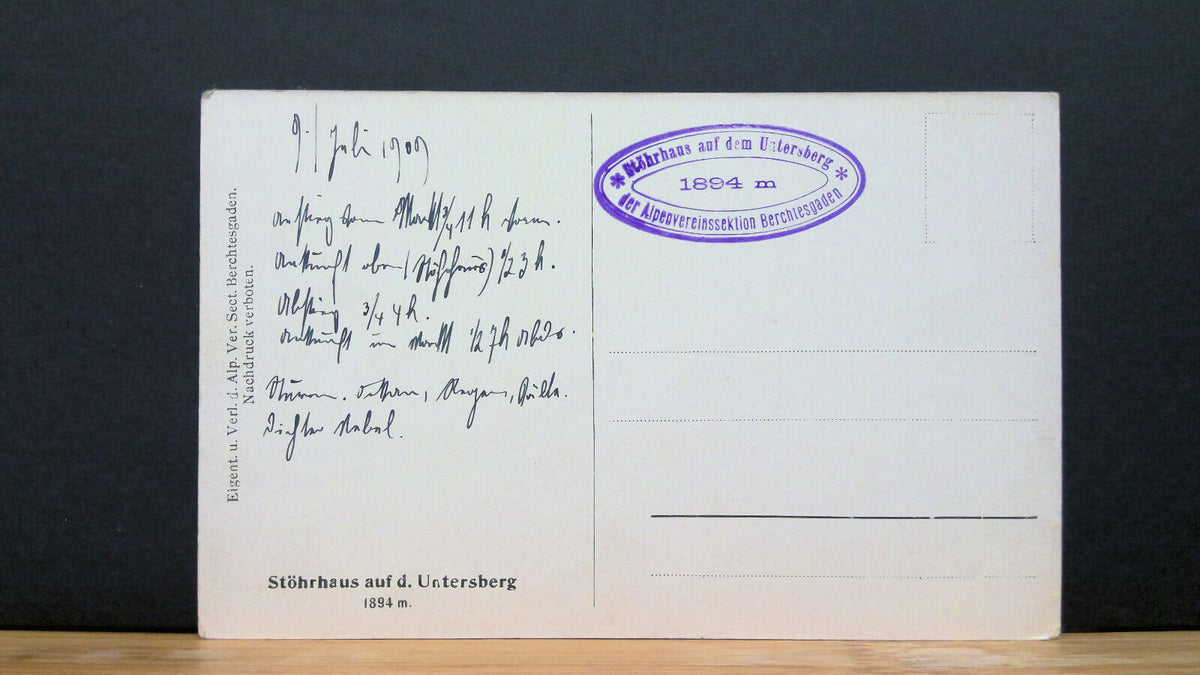 9./ Juli 1909
Aufstieg vom Markt 3/4 11 h vorm.
Ankunft oben (Stöhrhaus) 1/2 3 h.
Abstieg 3/4 4 h.
Ankunft im Markt 1/2 7 h Abds.
Sturm, Regen, Kälte.
Dichter Nebel.
Eigent. u. Verl. d. Alp. Ver. Sect. Berchtesgaden.
Nachdruck verboten.
Stöhrhaus auf d. Untersberg
1894 m.
* Stöhrhaus auf dem Untersberg *
1894 m
der Alpenvereinssektion Berchtesgaden